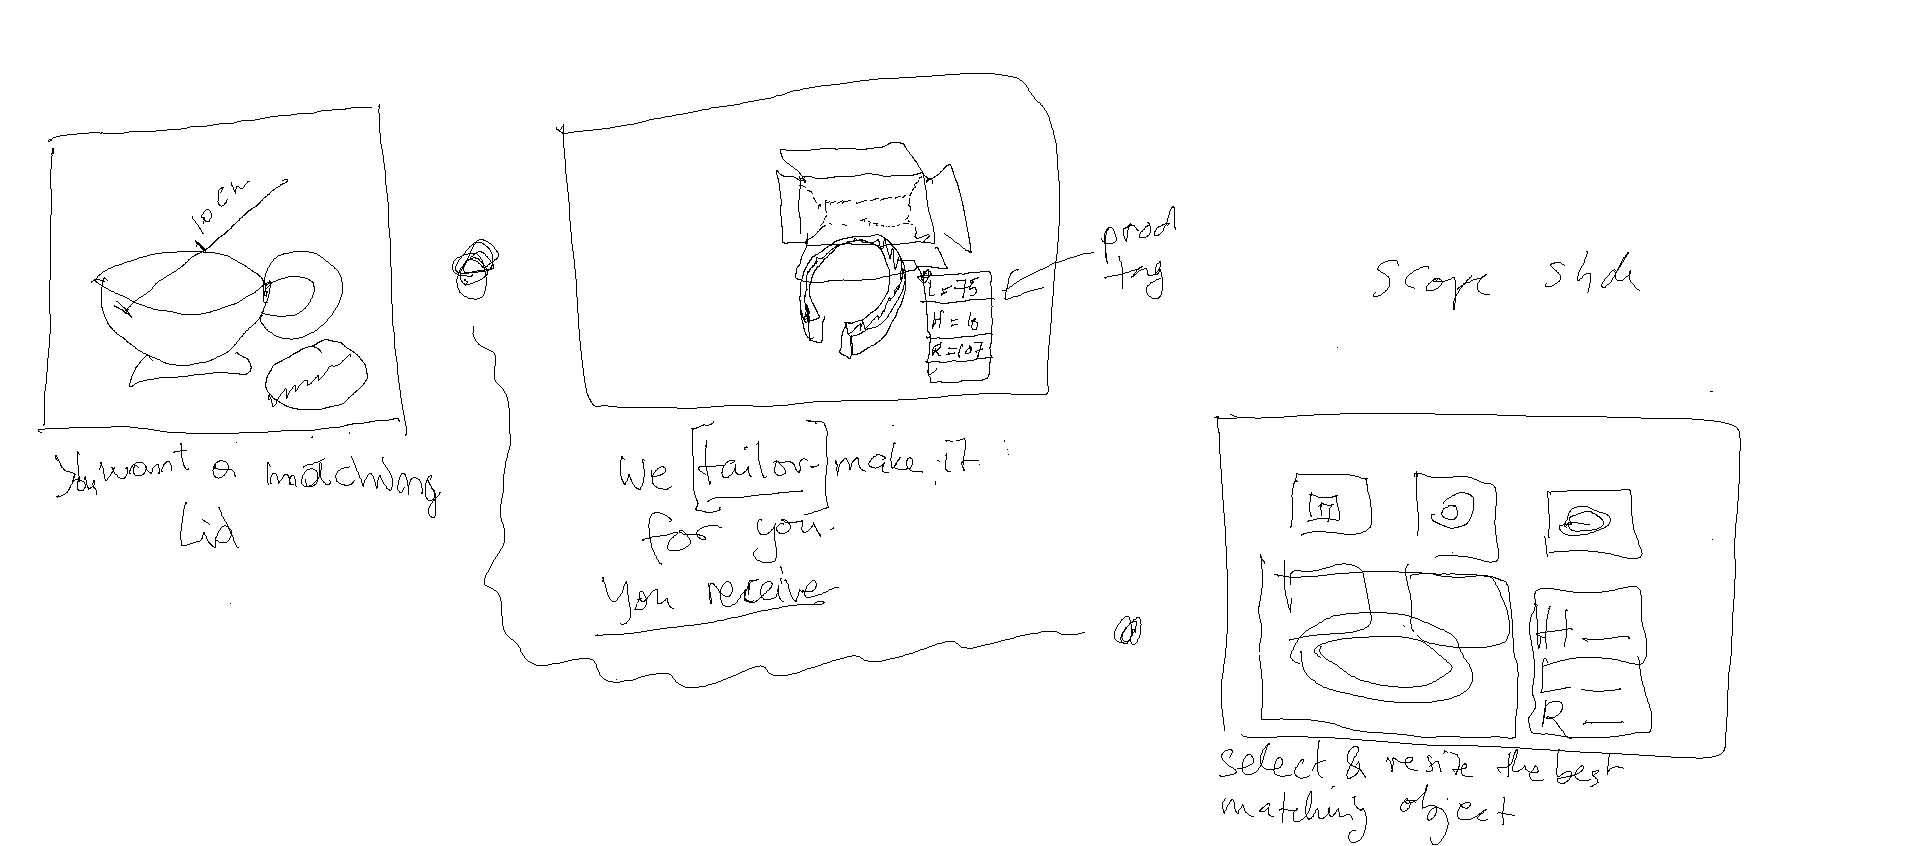 10 cm
You want a matching
Lid
L = 75
H = 10
R = 107
prod
tag
We [tailor-]make it
for you.
You receive
Scope Slide
H —
L —
R —
select & resize the best
matching object